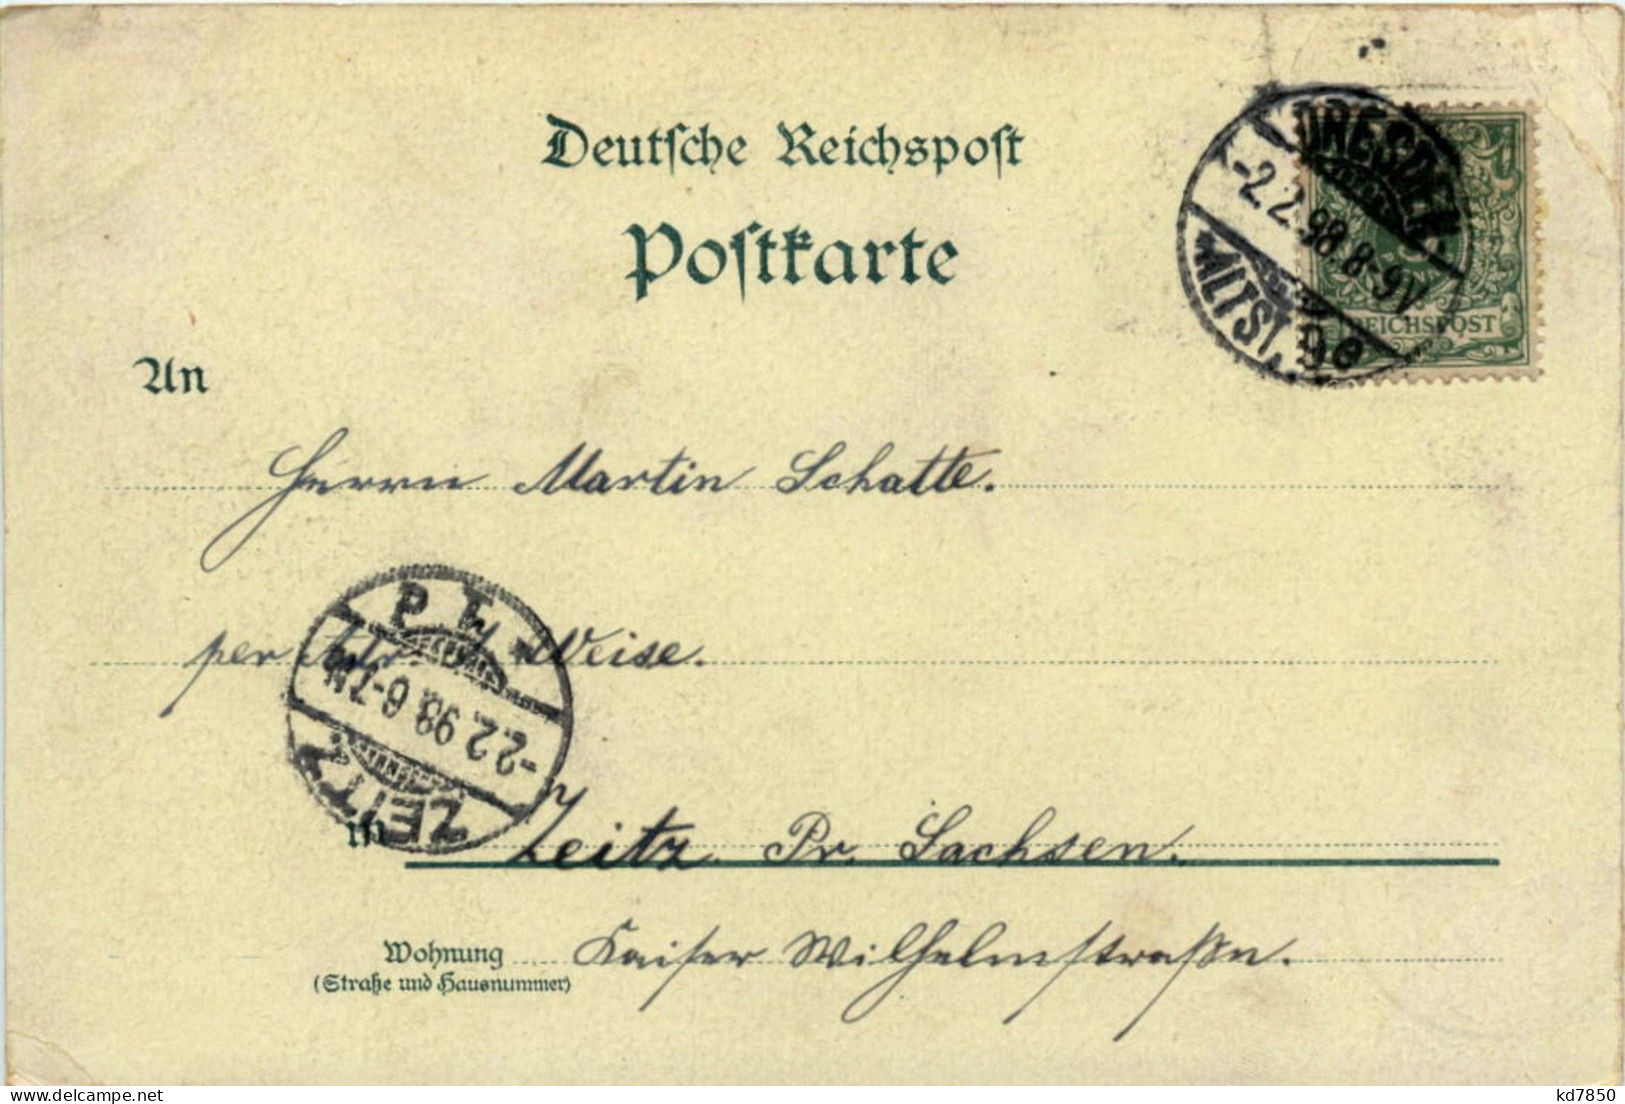 Deutsche Reichspost
Postkarte
DRESDEN
-2.2.98.8-9V
*ALTST. 9e
REICHSPOST
An
Herrn Martin Schatte.
per Adr. Weise.
-2.2.98.6-7N
ZEITZ
in Zeitz Pr. Sachsen.
Wohnung Kaiser Wilhelmstraße.
(Straße und Hausnummer)
kd7850